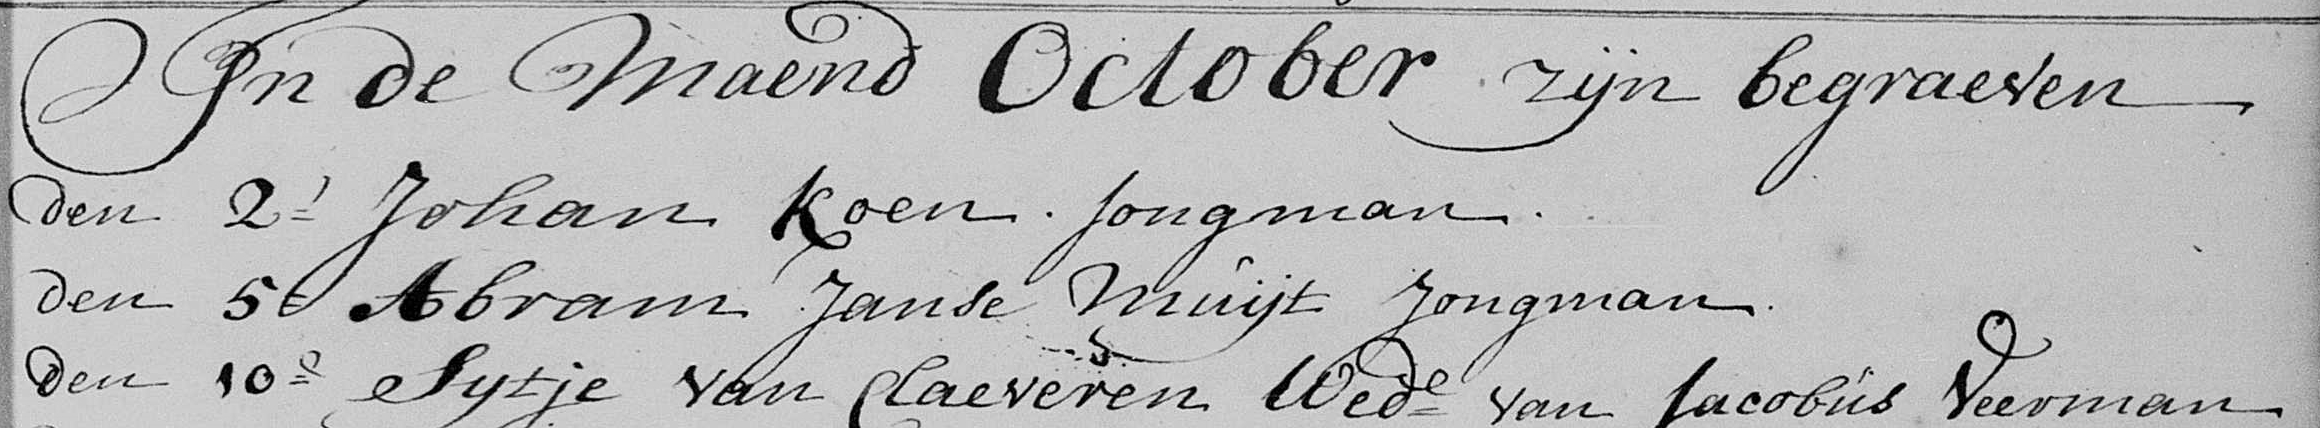 In de Maend October zijn begraeven
den 2e Johan Koen. Jongman.
den 5e Abram Janse Muijt Jongman.
den 10e Sytje van Claeveren Wede van Jacobus Veerman